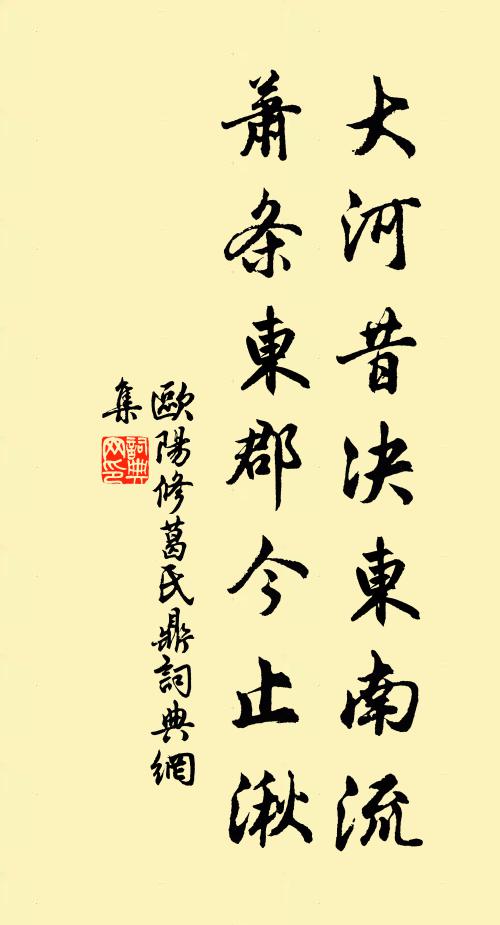 大河昔决東南流
蕭条東郡今止湫
歐陽修葛氏鼎詞典網
集
詞典
网印